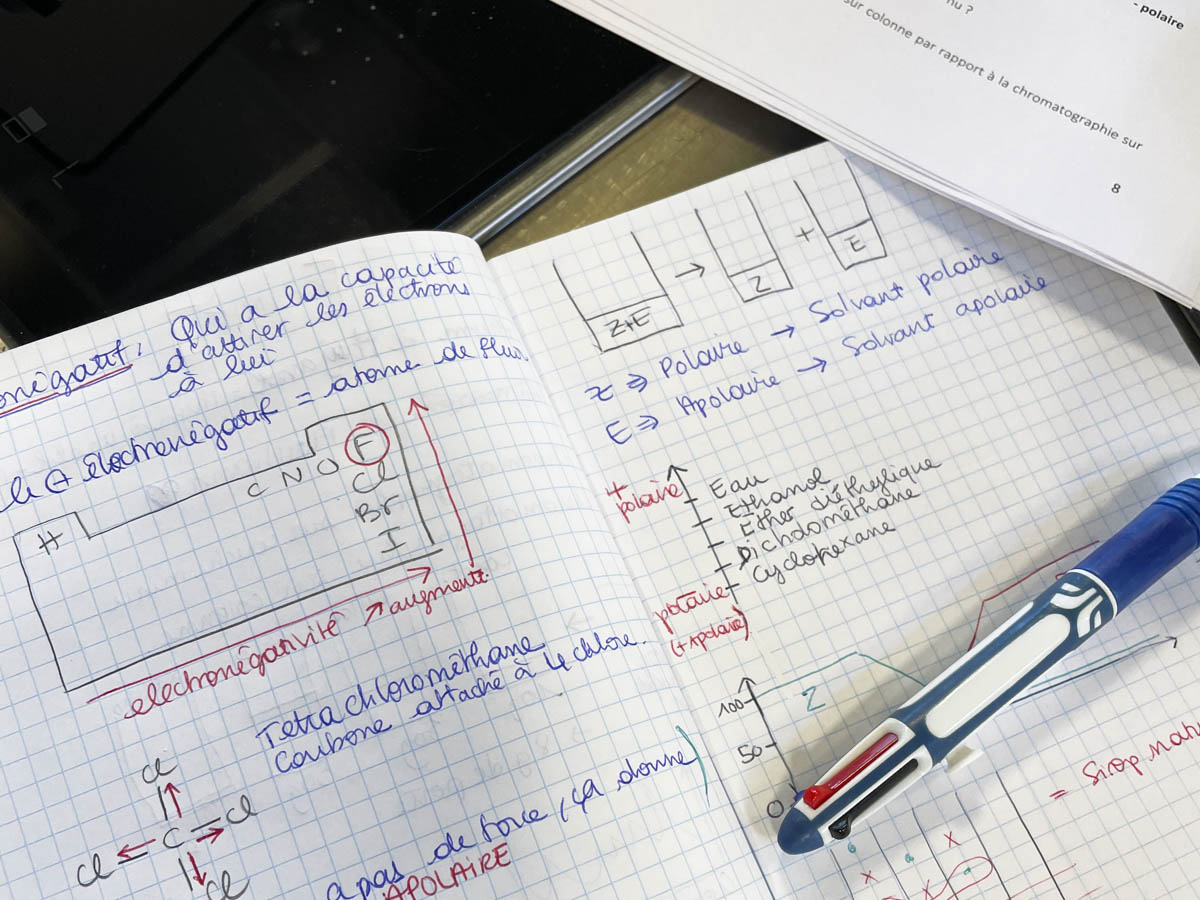 - polaire
nu ?
sur colonne par rapport à la chromatographie sur
8
onégatif: Qui a la capacité
d'attirer les électrons
à lui
le + électronégatif = atome de fluor
H
C N O F
Cl
Br
I
électronégativité ↗ augmente
Tetrachlorométhane
Carbone attaché à 4 chlore.
Cl
Cl C Cl
Cl
a pas de force, ça donne)
APOLAIRE
Z+E → Z + E
Z ⇒ Polaire → Solvant polaire
E ⇒ Apolaire → Solvant apolaire
+
polaire
Eau
Ethanol
Ether diéthylique
Dichlométhane
Cyclohexane
-
polaire
(+ Apolaire)
100
50
0
Z
= Sirop
x
x
x